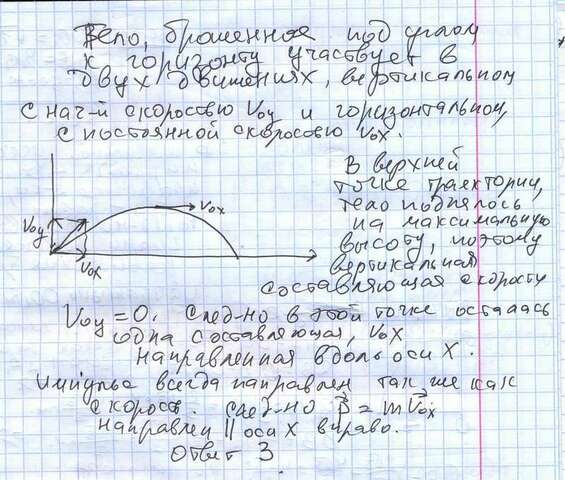 Тело, брошенное под углом
к горизонту участвует в
двух движениях, вертикальном
с нач-й скоростью Vоy и горизонтальном,
с постоянной скоростью Vоx.
В верхней
точке траектории,
тело поднялось
на максимальную
высоту, поэтому
вертикальная
составляющая скорости
Vоx
Vоy
Vоx
Vоy = 0. След-но в этой точке осталась
одна составляющая, Vоx
направленная вдоль оси X.
Импульс всегда направлен так же как
скорость. След-но p⃗ = mV⃗оx
направлен || оси X вправо.
Ответ 3